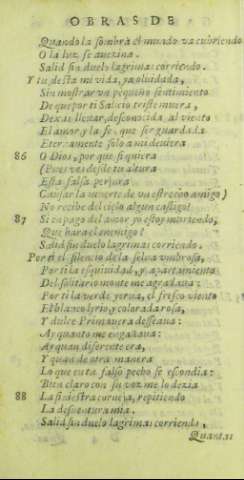 OBRAS DE
Quando la sombra el mundo va cubriendo
O la luz se auezina.
Salid sin duelo lagrimas corriendo.
Y tu desta mi vida, ya oluidada,
Sin mostrar vn pequeño sentimiento
De que por ti Salicio triste muera,
Dexas lleuar, desconocida al viento
El amor y la fe, que ser guardada
Eternamente solo a mi deuiera
86 O Dios, por que siquiera
(Pues ves desde tu altura
Esta falsa perjura
Causar la muerte de vn estrecho amigo)
No recibe del cielo algun castigo?
87 Si en pago del amor yo estoy muriendo,
Que hara el enemigo?
Salid sin duelo lagrimas corriendo.
Por ti el silencio de la selua vmbrosa,
Por ti la esquiuidad, y apartamiento
Del solitario monte me agradaua:
Por ti la verde yerua, el fresco viento
El blanco lirio, y colorada rosa,
Y dulce Primauera desseaua:
Ay quanto me engañaua:
Ay quan diferente era,
Y quan de otra manera
Lo que en tu falso pecho se escondia:
Bien claro con su voz me lo dezia
88 La siniestra corneja, repitiendo
La desuentura mia.
Salid sin duelo lagrimas corriendo,
Quantas